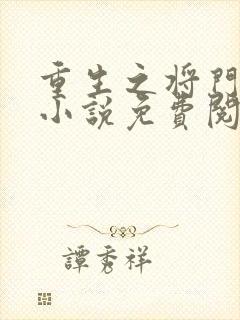 重生之将門
小說免費閱
譚秀祥